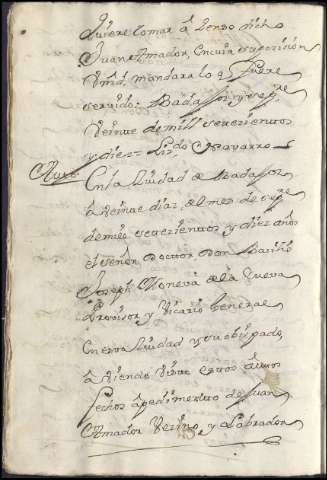 quiere tomar a censo dicho
Juan Amador, en cuia
Vmd. mandara lo q fuere
servido: Badajoz y
Veinte de mill setezientos
y diez = Lizdo. Navarro
Auto En la Ciudad de Badajoz
a Veinte dias del mes de
de mill setezientos y diez años
el señor Doctor Don
Joseph de la Cueva
Provisor y Vicario General
en esta Ciudad y su obispado,
aviendo visto estos autos
fechos a pedimento de Juan
Amador Vezino y Labrador